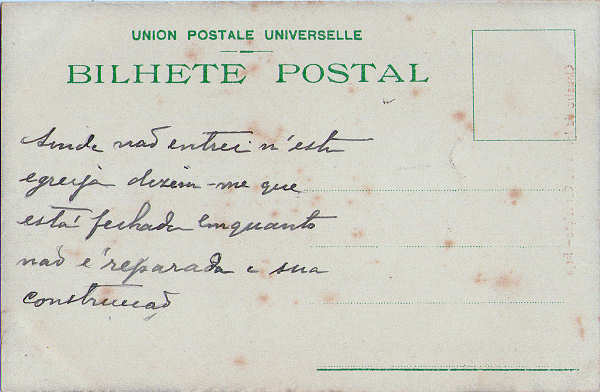 UNION POSTALE UNIVERSELLE
BILHETE POSTAL
Ainda não entrei n'esta
egreija dizem-me que
está fechada emquanto
não é reparada a sua
construcção